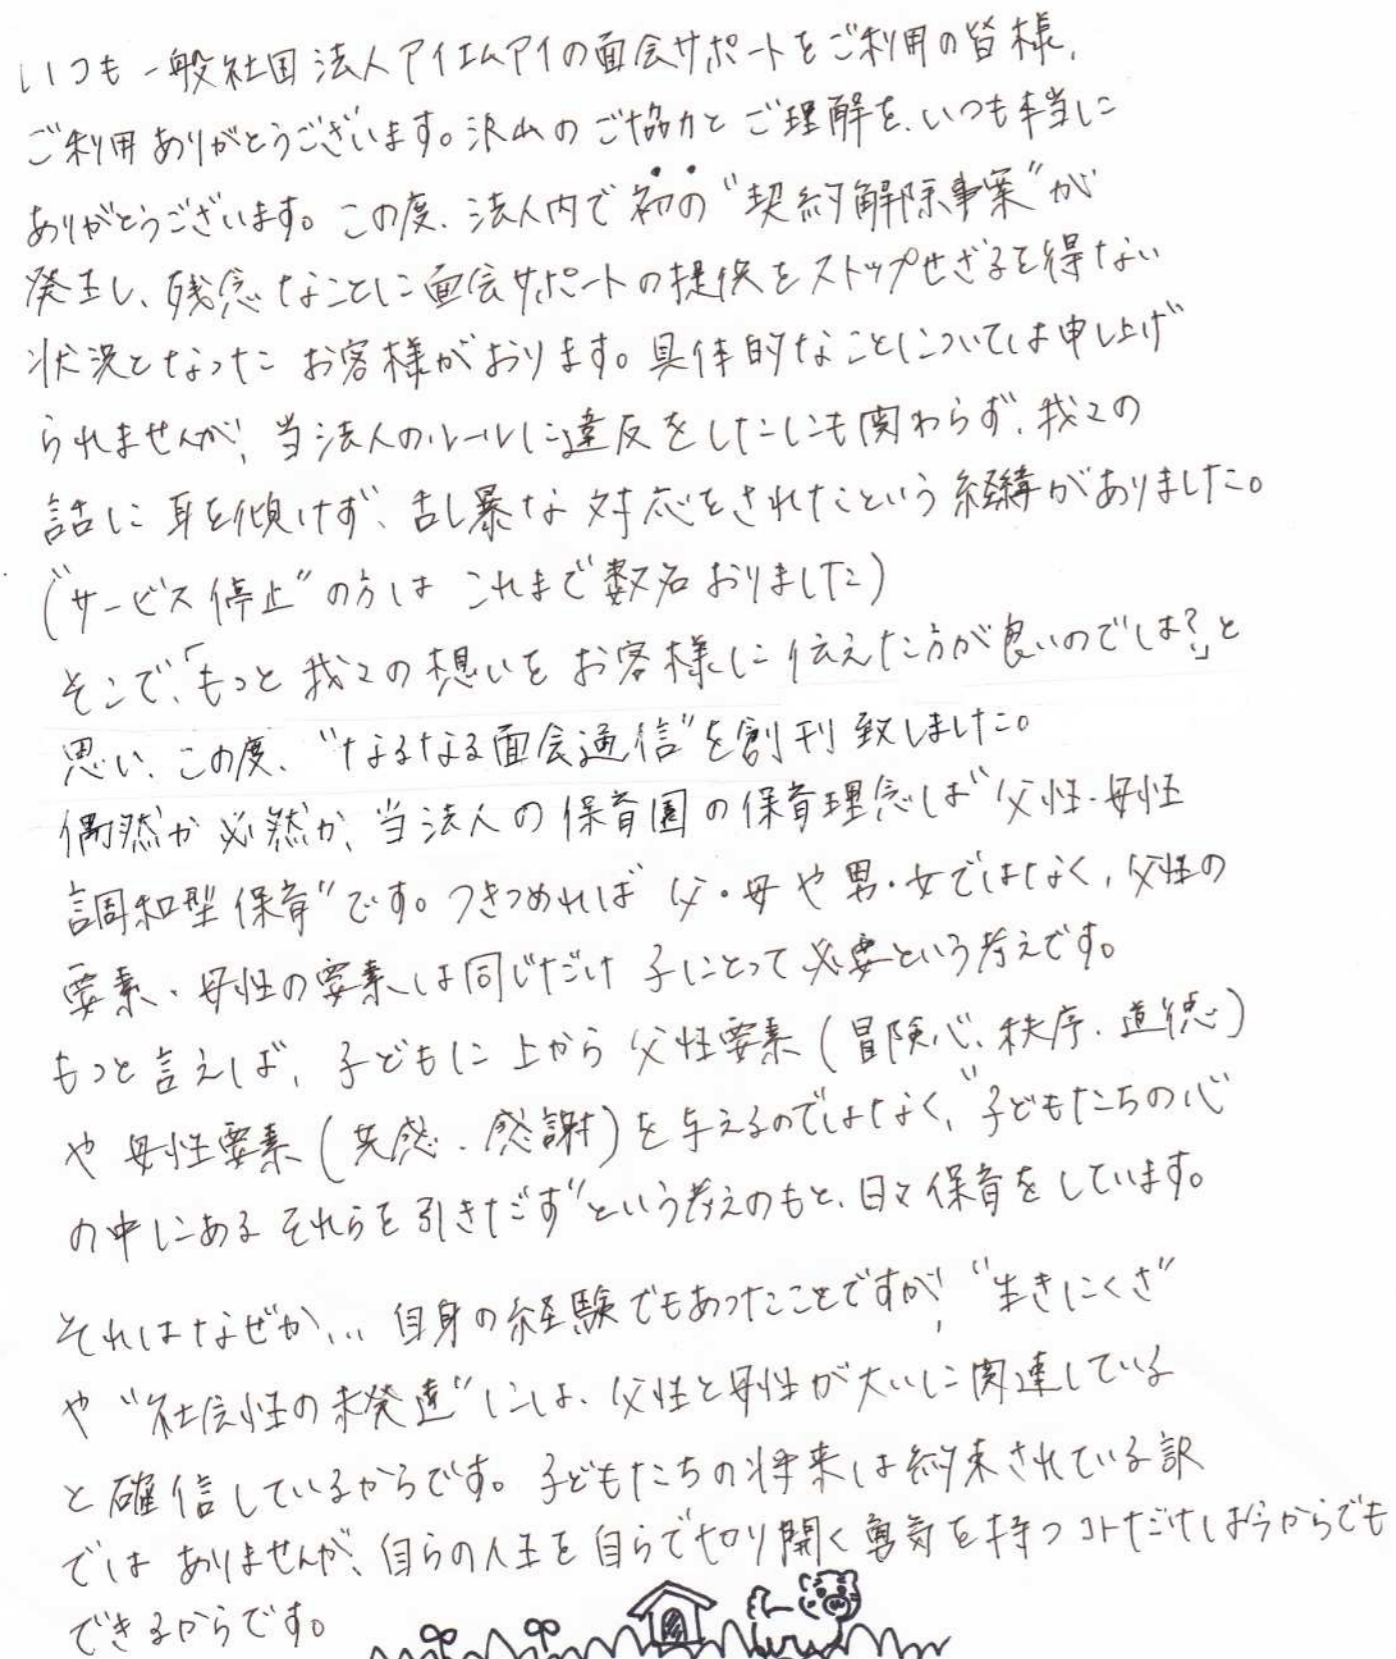 いつも一般社団法人アイエムアイの面会サポートをご利用の皆様、
ご利用ありがとうございます。沢山のご協力とご理解を、いつも本当に
ありがとうございます。この度、法人内で初の“契約解除事案”が
発生し、残念なことに面会サポートの提供をストップせざるを得ない
状況となったお客様がおります。具体的なことについては申し上げ
られませんが、当法人のルールに違反をしたにも関わらず、我々の
話に耳を傾けず、乱暴な対応をされたという経緯がありました。
(“サービス停止”の方はこれまで数名おりました)
そこで、「もっと我々の想いをお客様に伝えた方が良いのでは?」と
思い、この度、“なるなる面会通信”を創刊致しました。
偶然か必然か、当法人の保育園の保育理念は“父性・母性
調和型保育”です。つきつめれば父・母や男・女ではなく、父性の
要素、母性の要素は同じだけ子にとって必要という考えです。
もっと言えば、子どもに上から父性要素(冒険心、秩序、道徳)
や母性要素(共感、感謝)を与えるのではなく、“子どもたちの心
の中にあるそれらを引きだす”という考えのもと、日々保育をしています。
それはなぜか... 自身の経験でもあったことですが、“生きにくさ”
や“社会性の未発達”には、父性と母性が大いに関連している
と確信しているからです。子どもたちの将来は約束されている訳
ではありませんが、自らの人生を自らで切り開く勇気を持つコトだけは今からでも
できるからです。